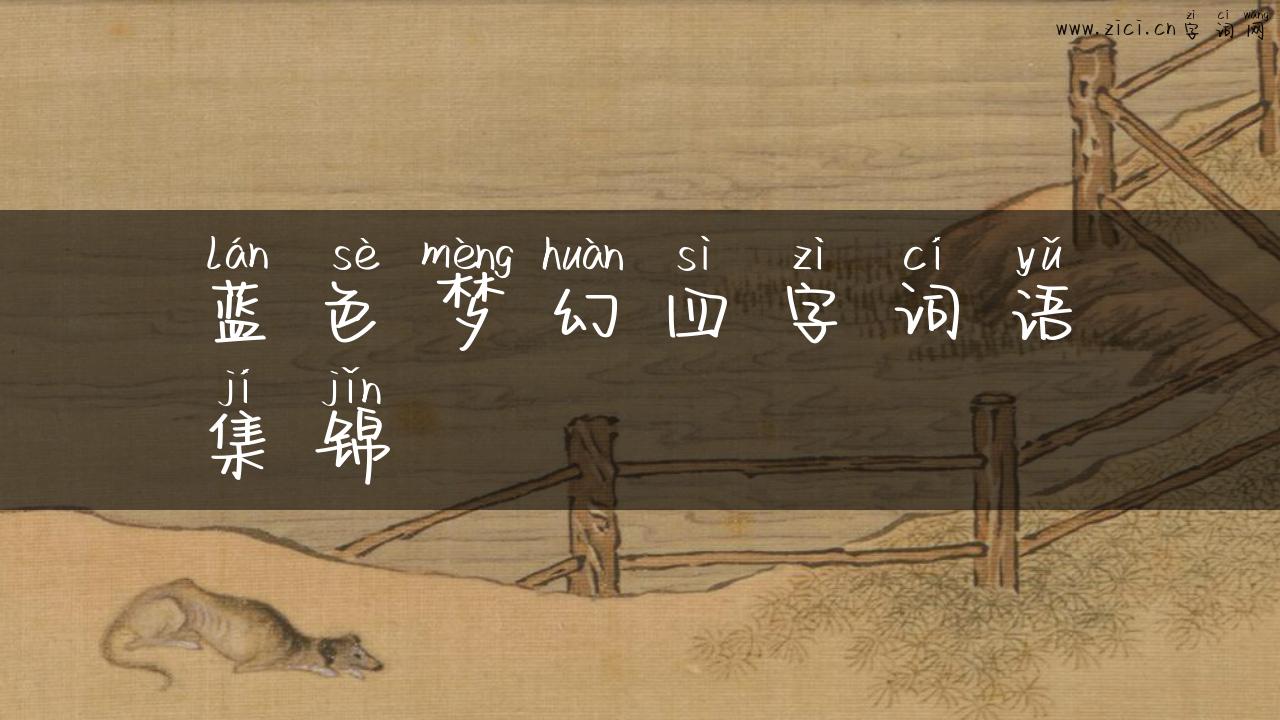 zì cí wǎng
www.zici.cn字词网
lán sè mèng huàn sì zì cí yǔ
蓝色梦幻四字词语
jí jǐn
集锦